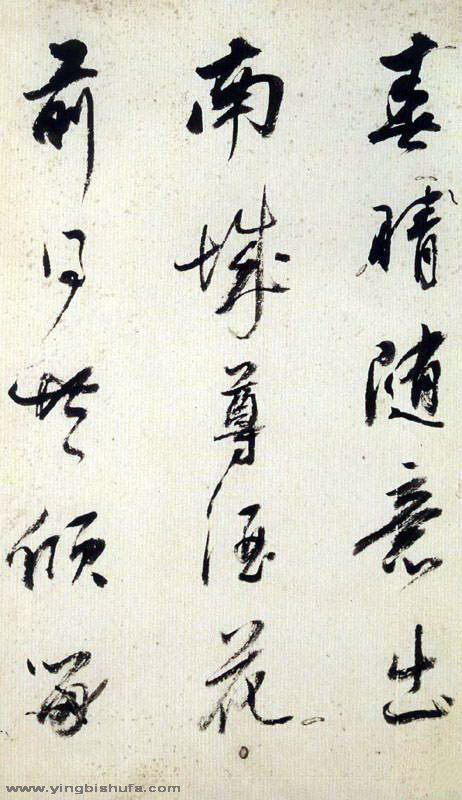 春晴随意出
南城尊酒花
前得共倾留
www.yingbishufa.com